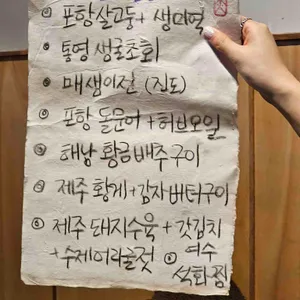 포항살고동+ 생미역
통영 생굴초회
매생이전 (진도)
포항 돌문어 + 허브오일
해남 황금배추구이
제주 황게 + 감자버터구이
제주 돼지수육 + 갓김치
+ 수제어리굴젓
여수
석화찜